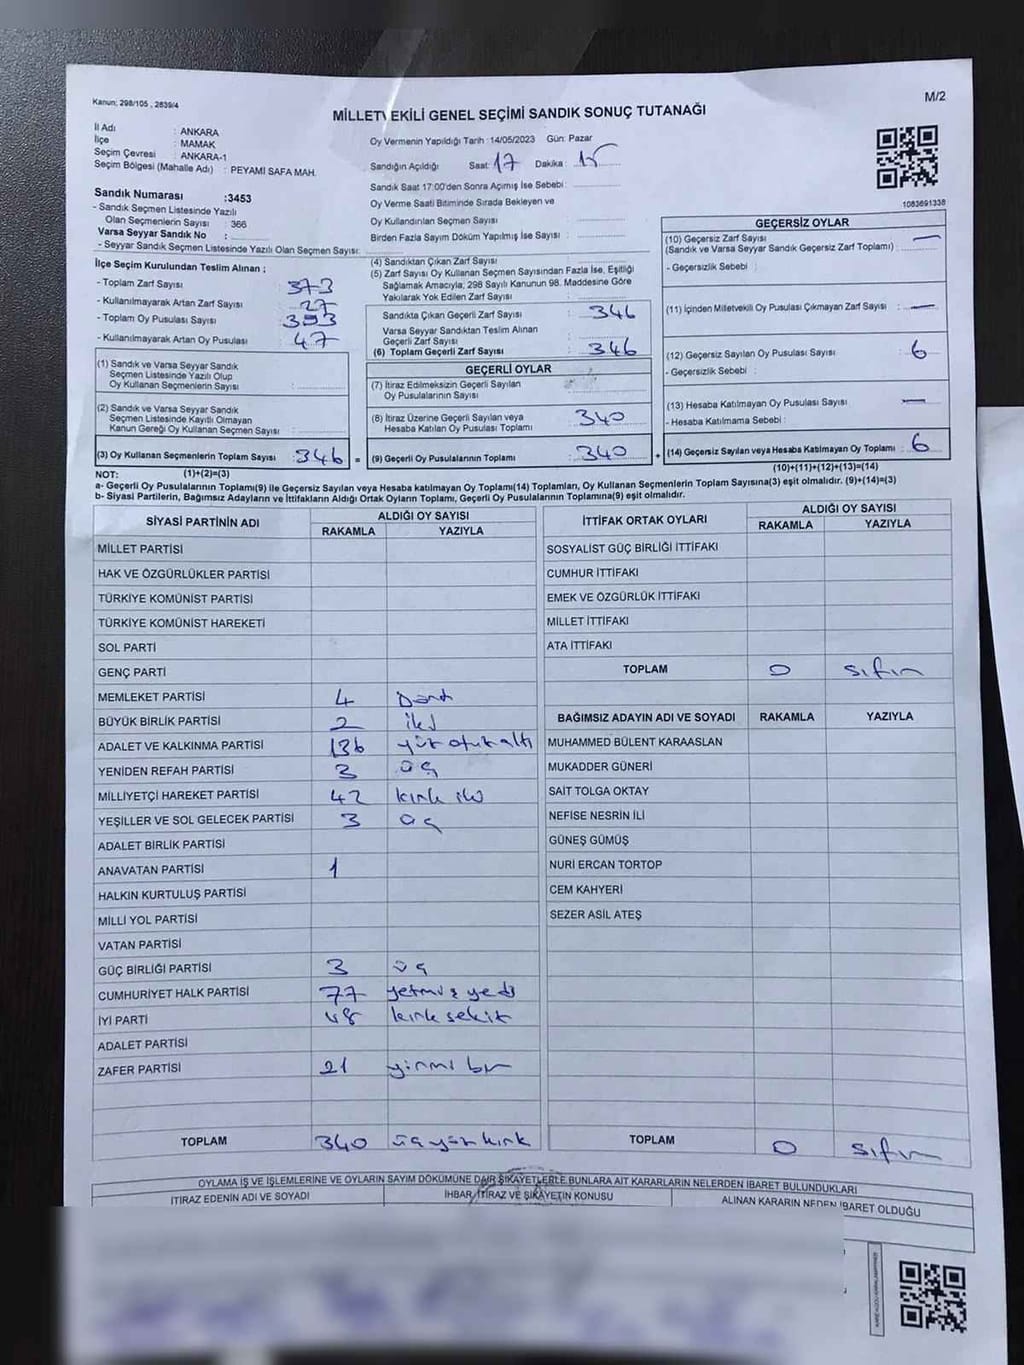 Kanun; 298/105 , 2839/4
M/2
MİLLETVEKİLİ GENEL SEÇİMİ SANDIK SONUÇ TUTANAĞI
İl Adı : ANKARA
İlçe : MAMAK
Seçim Çevresi : ANKARA-1
Seçim Bölgesi (Mahalle Adı) : PEYAMİ SAFA MAH.
Sandık Numarası :3453
- Sandık Seçmen Listesinde Yazılı
Olan Seçmenlerin Sayısı : 366
Varsa Seyyar Sandık No :
- Seyyar Sandık Seçmen Listesinde Yazılı Olan Seçmen Sayısı:
Oy Vermenin Yapıldığı Tarih : 14/05/2023 Gün: Pazar
Sandığın Açıldığı Saat: 17 Dakika : 15
Sandık Saat 17:00'den Sonra Açılmış İse Sebebi :
Oy Verme Saati Bitiminde Sırada Bekleyen ve
Oy Kullandırılan Seçmen Sayısı :
Birden Fazla Sayım Döküm Yapılmış İse Sayısı :
1083691338
İlçe Seçim Kurulundan Teslim Alınan ;
- Toplam Zarf Sayısı : 373
- Kullanılmayarak Artan Zarf Sayısı : 27
- Toplam Oy Pusulası Sayısı : 393
- Kullanılmayarak Artan Oy Pusulası : 47
(1) Sandık ve Varsa Seyyar Sandık
Seçmen Listesinde Yazılı Olup
Oy Kullanan Seçmenlerin Sayısı :
(2) Sandık ve Varsa Seyyar Sandık
Seçmen Listesinde Kayıtlı Olmayan
Kanun Gereği Oy Kullanan Seçmen Sayısı :
(3) Oy Kullanan Seçmenlerin Toplam Sayısı : 346 =
(4) Sandıktan Çıkan Zarf Sayısı :
(5) Zarf Sayısı Oy Kullanan Seçmen Sayısından Fazla İse, Eşitliği
Sağlamak Amacıyla; 298 Sayılı Kanunun 98. Maddesine Göre
Yakılarak Yok Edilen Zarf Sayısı :
Sandıkta Çıkan Geçerli Zarf Sayısı : 346
Varsa Seyyar Sandıktan Teslim Alınan
Geçerli Zarf Sayısı :
(6) Toplam Geçerli Zarf Sayısı : 346
GEÇERLİ OYLAR
(7) İtiraz Edilmeksizin Geçerli Sayılan
Oy Pusulalarının Sayısı :
(8) İtiraz Üzerine Geçerli Sayılan veya
Hesaba Katılan Oy Pusulası Toplamı : 340
(9) Geçerli Oy Pusulalarının Toplamı : 340 +
GEÇERSİZ OYLAR
(10) Geçersiz Zarf Sayısı : —
(Sandık ve Varsa Seyyar Sandık Geçersiz Zarf Toplamı)
- Geçersizlik Sebebi :
(11) İçinden Milletvekili Oy Pusulası Çıkmayan Zarf Sayısı : —
(12) Geçersiz Sayılan Oy Pusulası Sayısı : 6
- Geçersizlik Sebebi :
(13) Hesaba Katılmayan Oy Pusulası Sayısı : —
- Hesaba Katılmama Sebebi :
(14) Geçersiz Sayılan veya Hesaba Katılmayan Oy Toplamı : 6
NOT: (1)+(2)=(3)
(10)+(11)+(12)+(13)=(14)
a- Geçerli Oy Pusulalarının Toplamı(9) ile Geçersiz Sayılan veya Hesaba katılmayan Oy Toplamı(14) Toplamları, Oy Kullanan Seçmenlerin Toplam Sayısına(3) eşit olmalıdır. (9)+(14)=(3)
b- Siyasi Partilerin, Bağımsız Adayların ve İttifakların Aldığı Ortak Oyların Toplamı, Geçerli Oy Pusulalarının Toplamına(9) eşit olmalıdır.
SİYASİ PARTİNİN ADI
ALDIĞI OY SAYISI
RAKAMLA YAZIYLA
MİLLET PARTİSİ
HAK VE ÖZGÜRLÜKLER PARTİSİ
TÜRKİYE KOMÜNİST PARTİSİ
TÜRKİYE KOMÜNİST HAREKETİ
SOL PARTİ
GENÇ PARTİ
MEMLEKET PARTİSİ 4 Dört
BÜYÜK BİRLİK PARTİSİ 2 iki
ADALET VE KALKINMA PARTİSİ 136 yüz otuz altı
YENİDEN REFAH PARTİSİ 3 üç
MİLLİYETÇİ HAREKET PARTİSİ 42 kırk iki
YEŞİLLER VE SOL GELECEK PARTİSİ 3 üç
ADALET BİRLİK PARTİSİ
ANAVATAN PARTİSİ 1
HALKIN KURTULUŞ PARTİSİ
MİLLİ YOL PARTİSİ
VATAN PARTİSİ
GÜÇ BİRLİĞİ PARTİSİ 3 üç
CUMHURİYET HALK PARTİSİ 77 yetmiş yedi
İYİ PARTİ 48 kırk sekiz
ADALET PARTİSİ
ZAFER PARTİSİ 21 yirmi bir
TOPLAM 340 üçyüz kırk
İTTİFAK ORTAK OYLARI
ALDIĞI OY SAYISI
RAKAMLA YAZIYLA
SOSYALİST GÜÇ BİRLİĞİ İTTİFAKI
CUMHUR İTTİFAKI
EMEK VE ÖZGÜRLÜK İTTİFAKI
MİLLET İTTİFAKI
ATA İTTİFAKI
TOPLAM 0 sıfır
BAĞIMSIZ ADAYIN ADI VE SOYADI RAKAMLA YAZIYLA
MUHAMMED BÜLENT KARAASLAN
MUKADDER GÜNERİ
SAİT TOLGA OKTAY
NEFİSE NESRİN İLİ
GÜNEŞ GÜMÜŞ
NURİ ERCAN TORTOP
CEM KAHYERİ
SEZER ASİL ATEŞ
TOPLAM 0 sıfır
OYLAMA İŞ VE İŞLEMLERİNE VE OYLARIN SAYIM DÖKÜMÜNE DAİR ŞİKAYETLERLE BUNLARA AİT KARARLARIN NELERDEN İBARET BULUNDUKLARI
İTİRAZ EDENİN ADI VE SOYADI
İHBAR, İTİRAZ VE ŞİKAYETİN KONUSU
ALINAN KARARIN NEDEN İBARET OLDUĞU